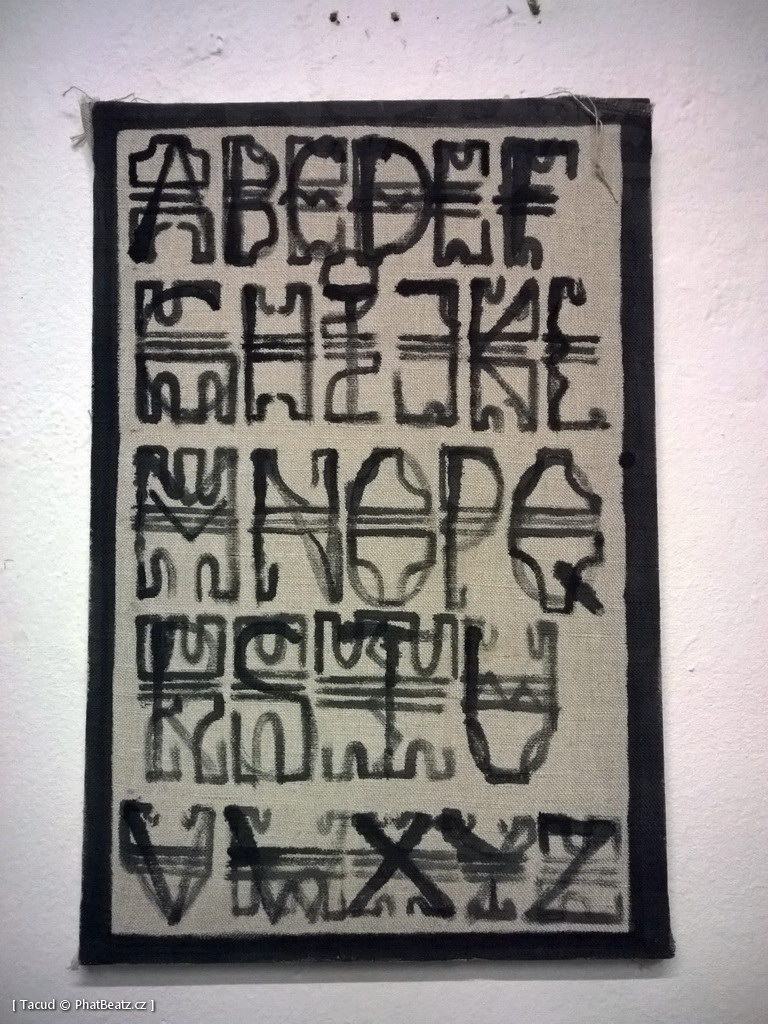 ABCDEF
GHIJKL
MNOPQ
RSTU
VWXYZ
[ Tacud © PhatBeatz.cz ]